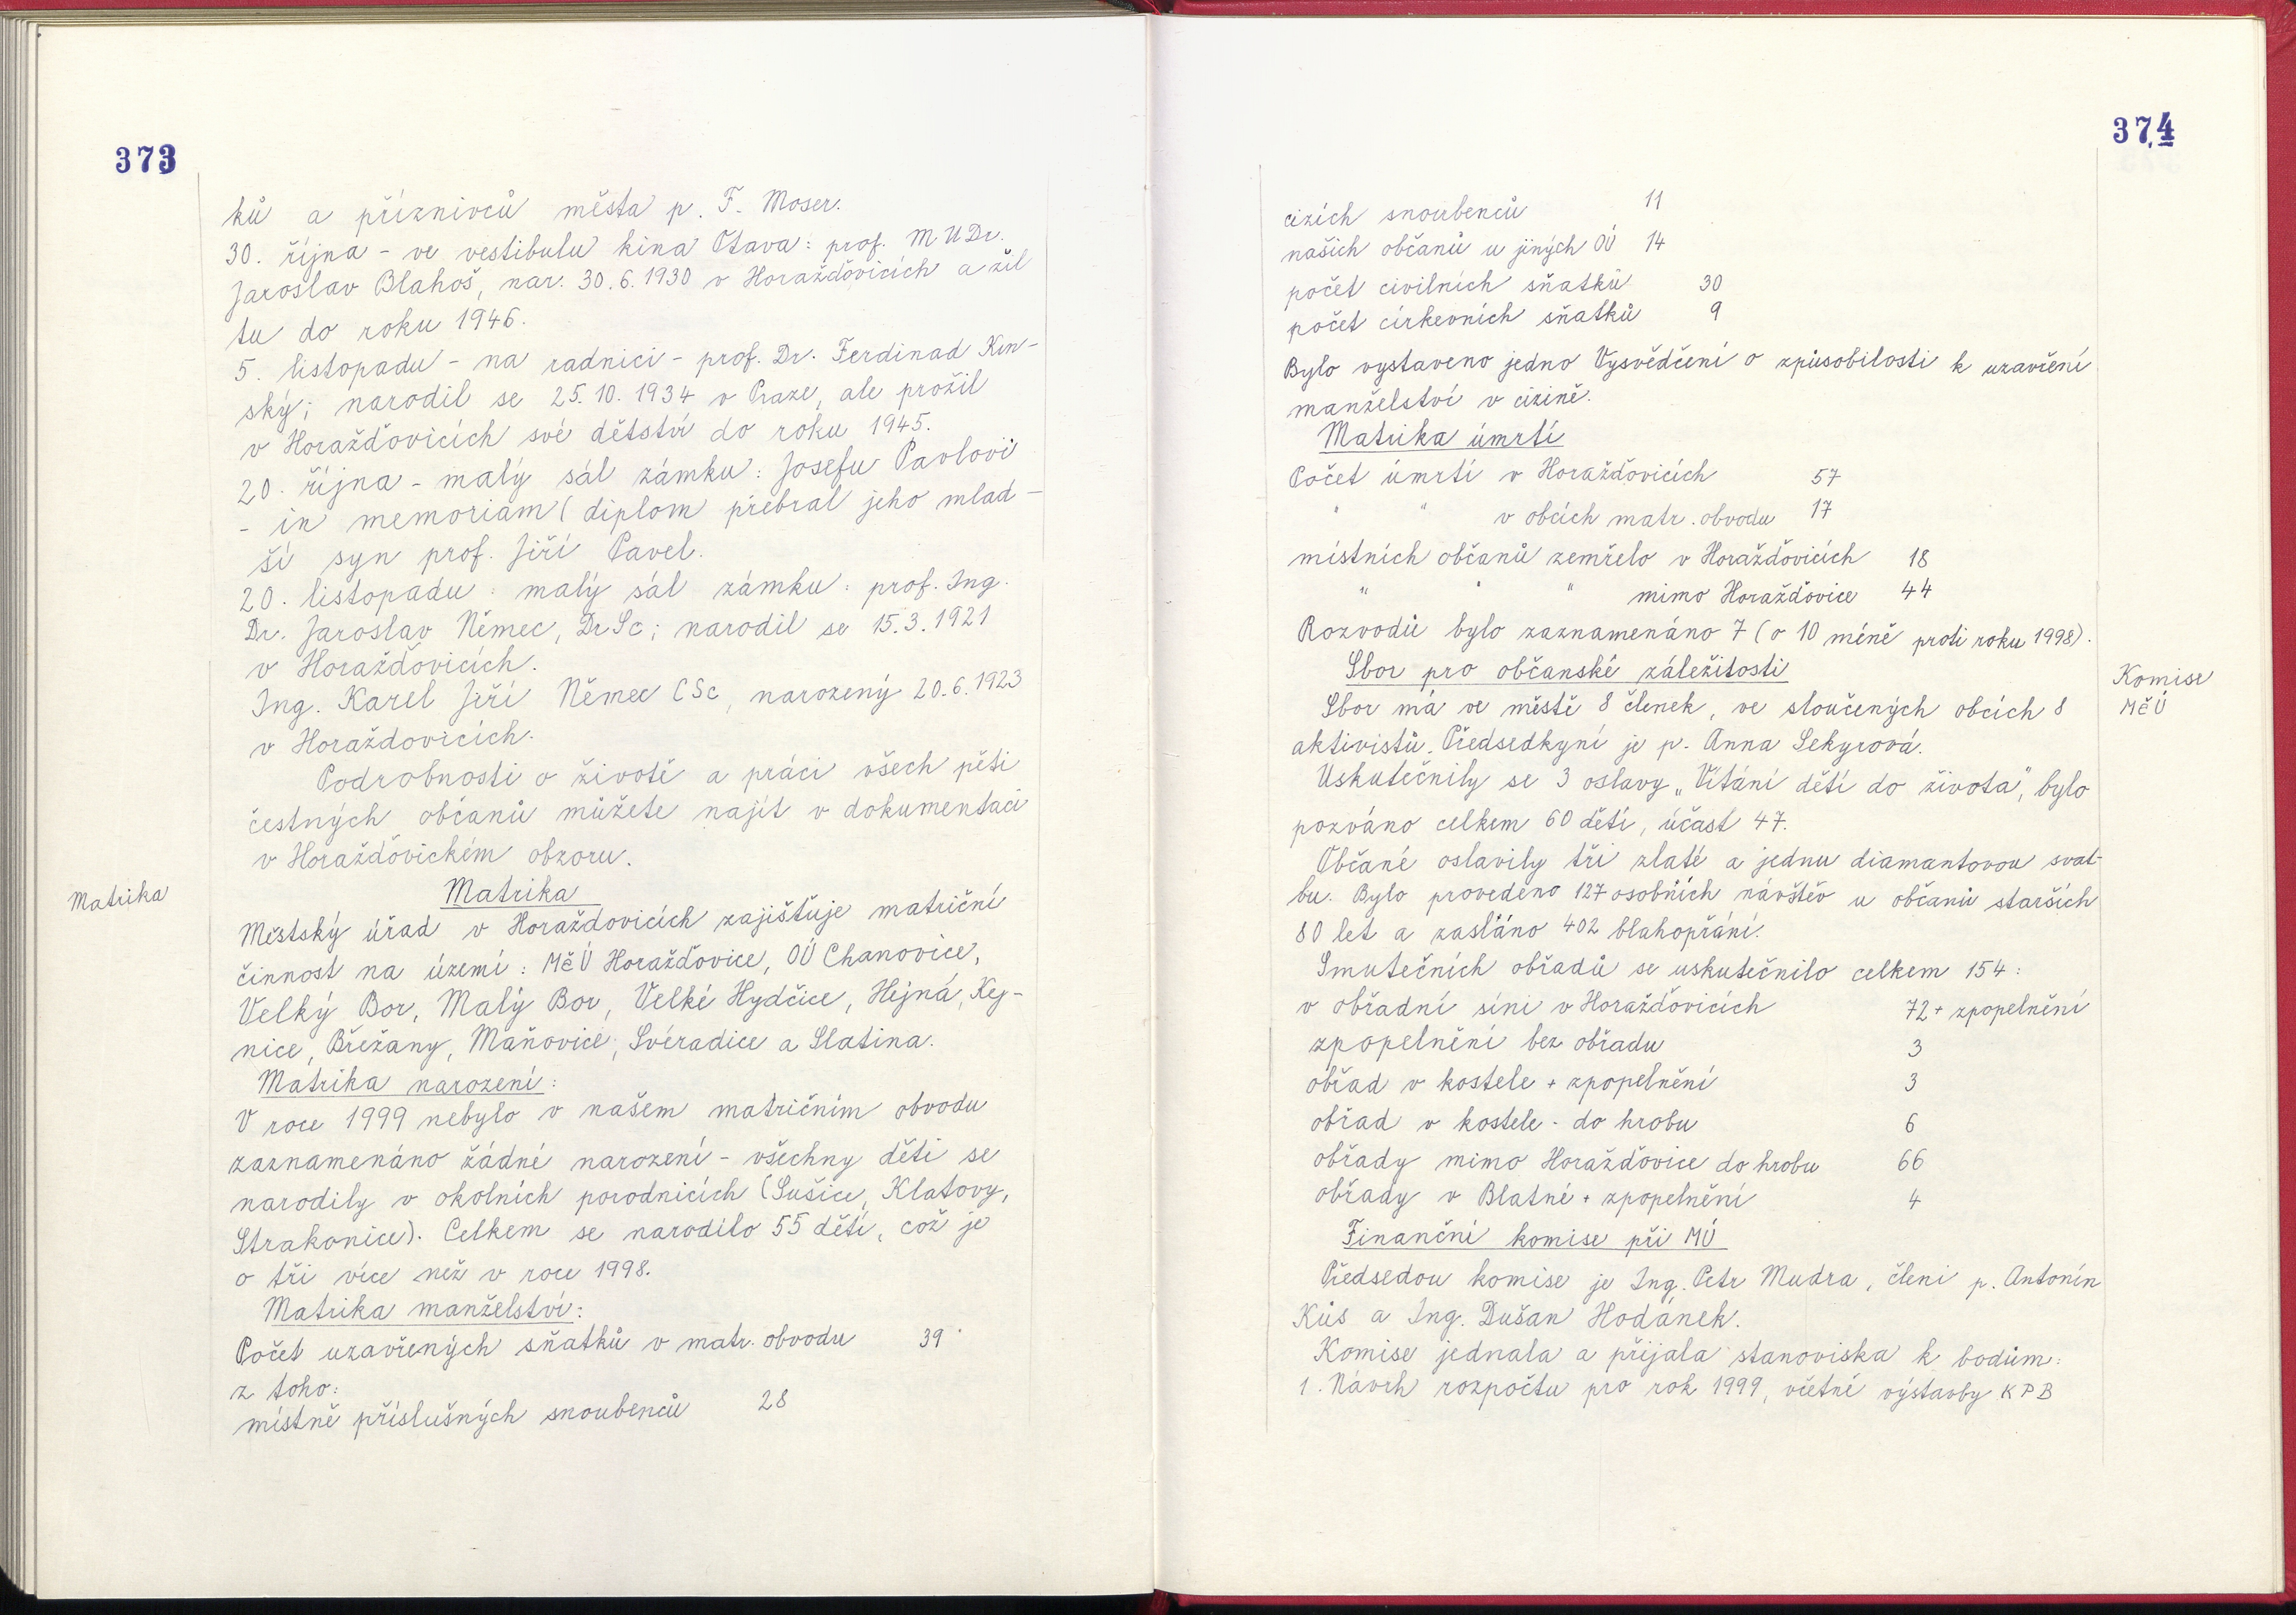 373
ků a příznivců města p. F. Moser.
30. října - ve vestibulu kina Otava: prof. MUDr.
Jaroslav Blahoš, nar. 30.6.1930 v Horažďovicích a žil
tu do roku 1946.
5. listopadu - na radnici - prof. Dr. Ferdinad Kin-
ský; narodil se 25.10.1934 v Praze, ale prožil
v Horažďovicích své dětství do roku 1945.
20. října - malý sál zámku: Josefu Pavlovi
- in memoriam (diplom přebral jeho mlad-
ší syn prof. Jiří Pavel.
20. listopadu: malý sál zámku: prof. Ing.
Dr. Jaroslav Němec, DrSc; narodil se 15.3.1921
v Horažďovicích.
Ing. Karel Jiří Němec CSc, narozený 20.6.1923
v Horaždovicích.
Podrobnosti o životě a práci všech pěti
čestných občanů můžete najít v dokumentaci
v Horažďovickém obzoru.
Matrika
Matrika
Městský úřad v Horažďovicích zajišťuje matriční
činnost na území: MěÚ Horažďovice, OÚ Chanovice,
Velký Bor, Malý Bor, Velké Hydčice, Hejná, Kej-
nice, Břežany, Maňovice, Svéradice a Slatina.
Matrika narození:
V roce 1999 nebylo v našem matričním obvodu
zaznamenáno žádné narození - všechny děti se
narodily v okolních porodnicích (Sušice, Klatovy,
Strakonice). Celkem se narodilo 55 dětí, což je
o tři více než v roce 1998.
Matrika manželství:
Počet uzavřených sňatků v matr. obvodu 39
z toho:
místně příslušných snoubenců 28
374
cizích snoubenců 11
našich občanů u jiných OÚ 14
počet civilních sňatků 30
počet církevních sňatků 9
Bylo vystaveno jedno Vysvědčení o způsobilosti k uzavření
manželství v cizině.
Matrika úmrtí
Počet úmrtí v Horažďovicích 57
" " v obcích matr. obvodu 17
místních občanů zemřelo v Horažďovicích 18
" " " mimo Horažďovice 44
Rozvodů bylo zaznamenáno 7 (o 10 méně proti roku 1998).
Sbor pro občanské záležitosti
Komise
MěÚ
Sbor má ve městě 8 členek, ve sloučených obcích 8
aktivistů. Předsedkyní je p. Anna Sekyrová.
Uskutečnily se 3 oslavy „Vítání dětí do života", bylo
pozváno celkem 60 dětí, účast 47.
Občané oslavily tři zlaté a jednu diamantovou svat-
bu. Bylo provedeno 127 osobních návštěv u občanů starších
80 let a zasláno 402 blahopřání.
Smutečních obřadů se uskutečnilo celkem 154:
v obřadní síni v Horažďovicích 72 + zpopelnění
zpopelnění bez obřadu 3
obřad v kostele + zpopelnění 3
obřad v kostele - do hrobu 6
obřady mimo Horažďovice do hrobu 66
obřady v Blatné + zpopelnění 4
Finanční komise při MÚ
Předsedou komise je Ing. Petr Mudra, členi p. Antonín
Kůs a Ing. Dušan Hodánek.
Komise jednala a přijala stanoviska k bodům:
1. Návrh rozpočtu pro rok 1999, včetně výstavby KPB